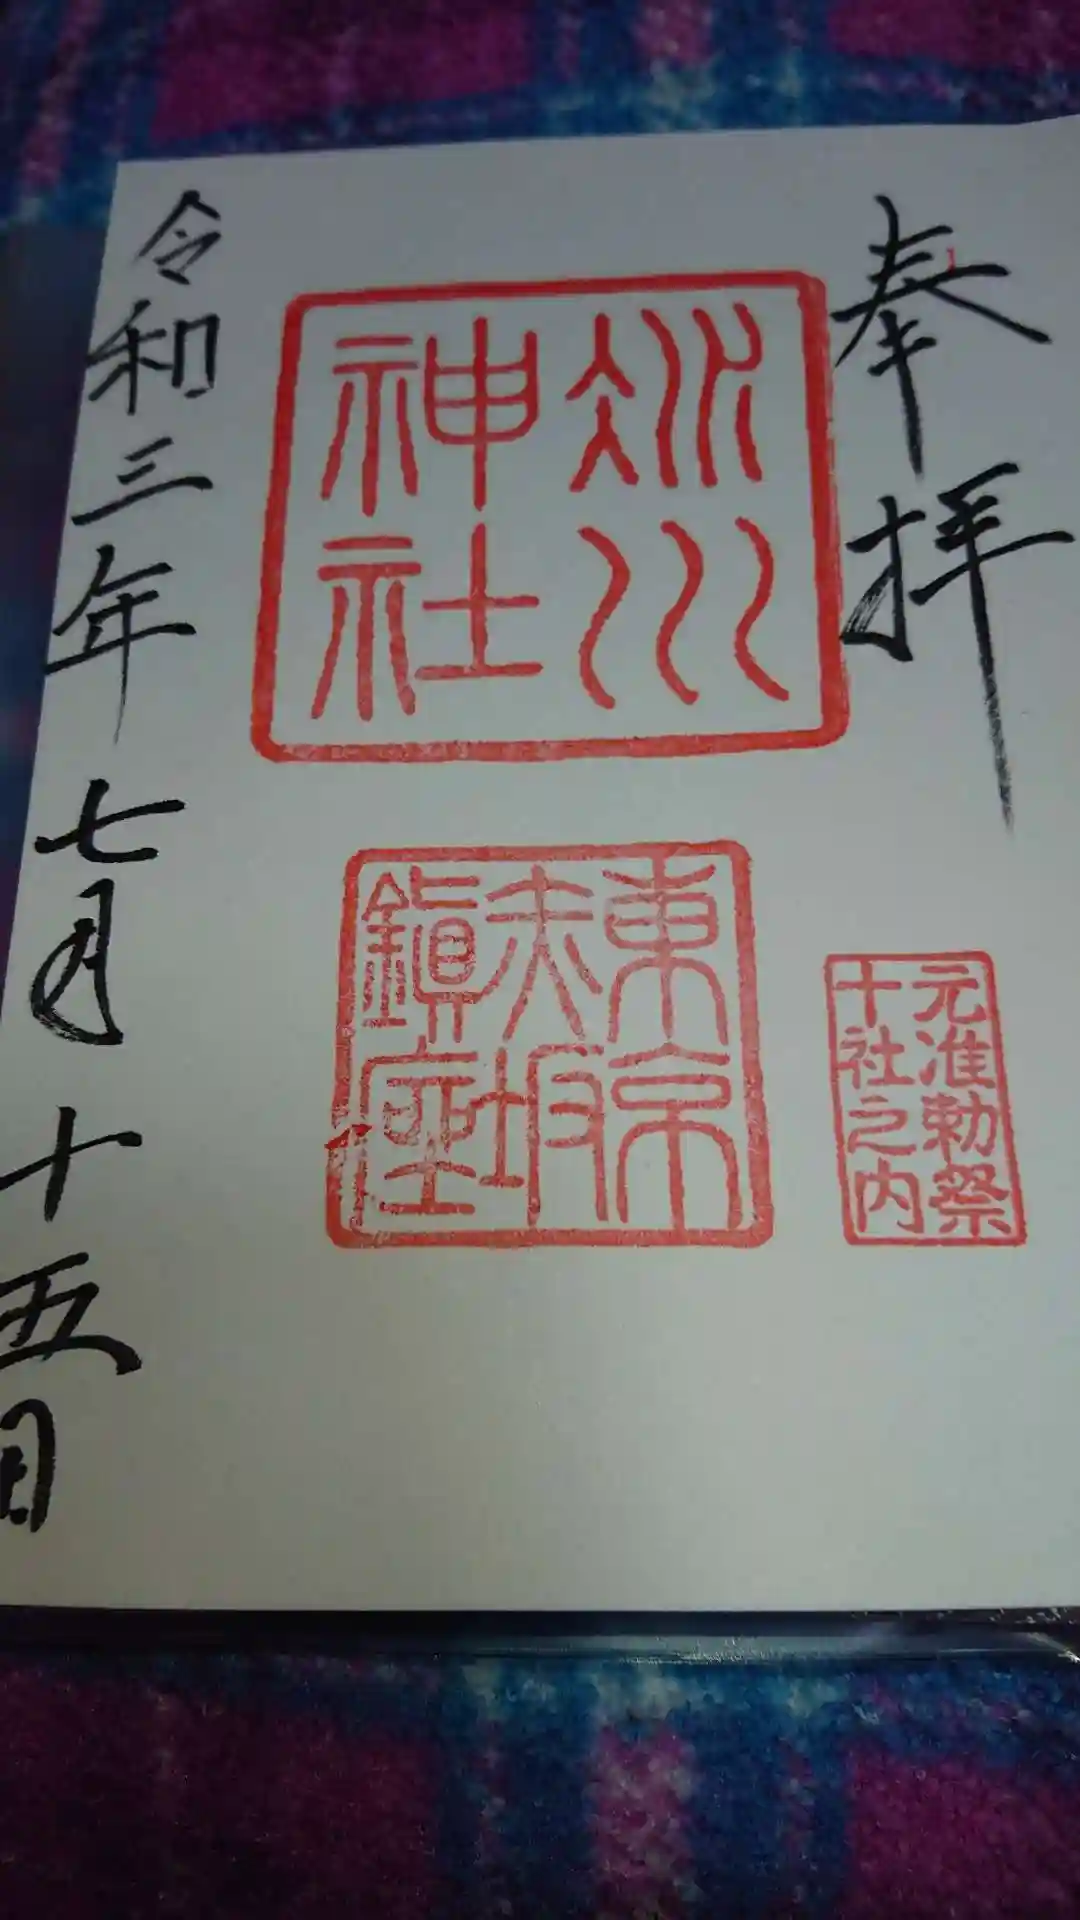 奉拝
氷川
神社
東京
赤坂
鎮座
元准勅祭
十社之内
令和三年七月十五日